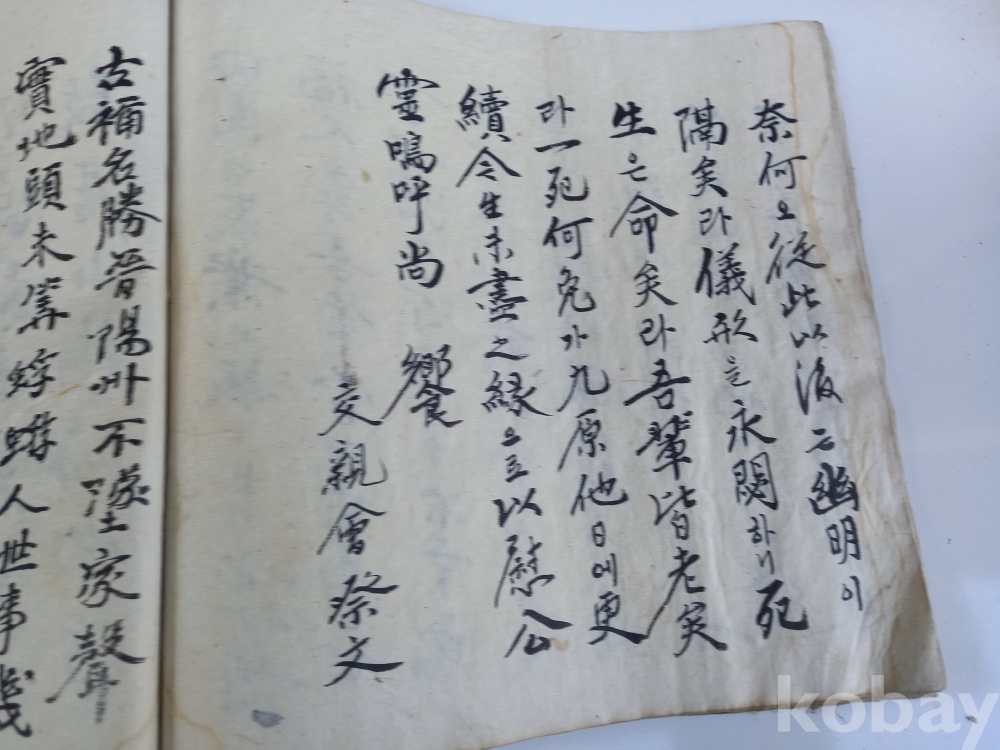 奈何오從此以後는幽明이
隔矣라儀形은永閟하니死
生은命矣라吾輩皆老矣
라一死何免가九原他日에更
續今生未盡之緣으로以慰公
靈嗚呼尚
饗
交親會祭文
古稱名勝晉陽州不墜家聲
實地頭未筭蜉蝣人世事幾
kobay